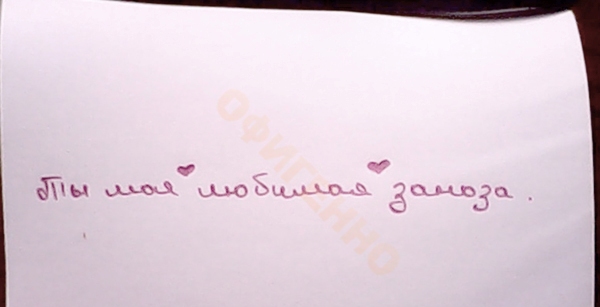 Ты моя любимая заноза.
ОФИГЕННО